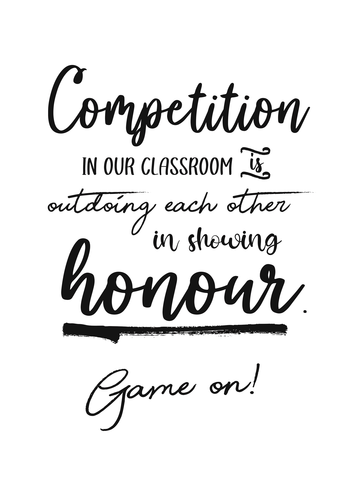 Competition
IN OUR CLASSROOM is
outdoing each other
in showing
honour.
Game on!